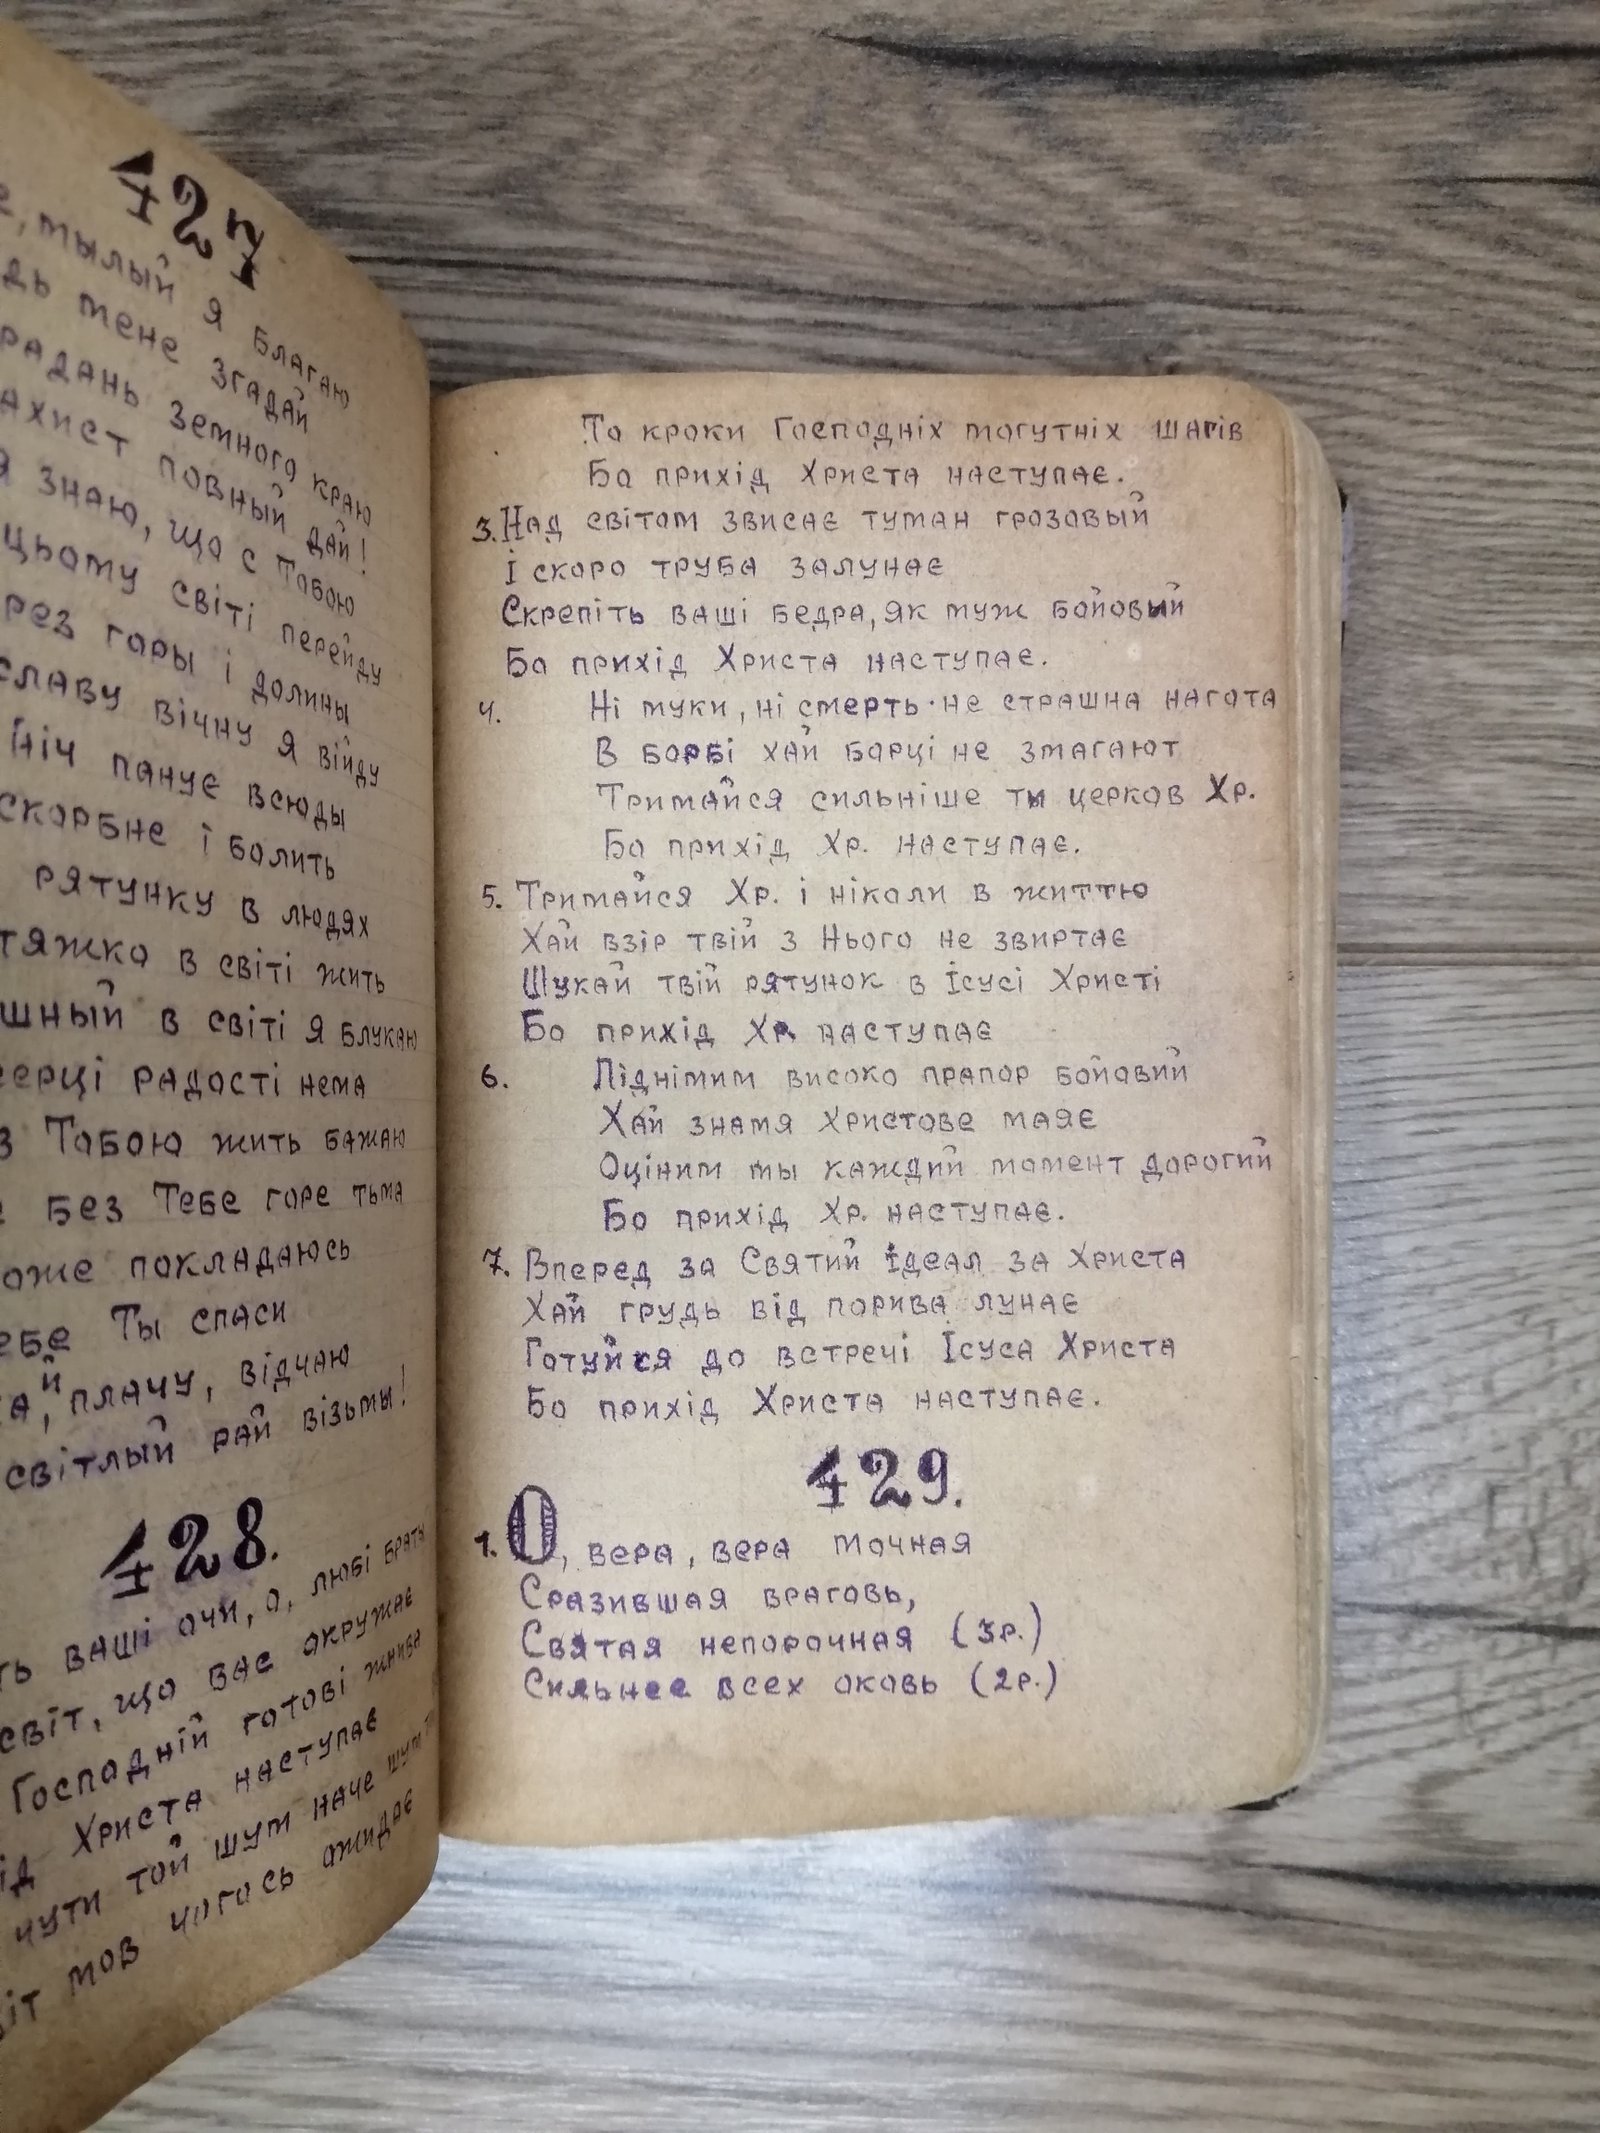 427
мылый я благаю
мене згадай
земного краю
повный дай!
я знаю, що с Тобою
цьому світі перейду
горы і долины
славу вічну я війду
Ніч панує всюды
скорбне і болить
рятунку в людях
тяжко в світі жить
в світі я блукаю
серці радості нема
Тобою жить бажаю
без Тебе горе тьма
покладаюсь
Ты спаси
плачу, відчаю
світлый рай візьмы!
428.
ваші очи, о, любі браты
світ, що вас окружає
Господній готові жнива
Христа наступає
чути той шум наче шум
мов чогось ожидає
То кроки Господніх могутніх шагів
Бо прихід Христа наступає.
3. Над світом звисає туман грозовый
І скоро труба залунає
Скрепіть ваші бедра, як муж бойовый
Бо прихід Христа наступає.
4. Ні муки, ні смерть не страшна нагота
В борбі хай борці не змагают
Тримайся сильніше ты церков Хр.
Бо прихід Хр. наступає.
5. Тримайся Хр. і ніколи в життю
Хай взір твій з Нього не звиртає
Шукай твій рятунок в Ісусі Христі
Бо прихід Хр. наступає
6. Піднімим високо прапор бойовий
Хай знамя Христове маяє
Оціним мы каждий момент дорогий
Бо прихід Хр. наступає.
7. Вперед за Святий ідеал за Христа
Хай грудь від порива лунає
Готуйся до встречі Ісуса Христа
Бо прихід Христа наступає.
429.
1. О, вера, вера мочная
Сразившая враговь,
Святая непорочная (3р.)
Сильнее всех оковь (2р.)